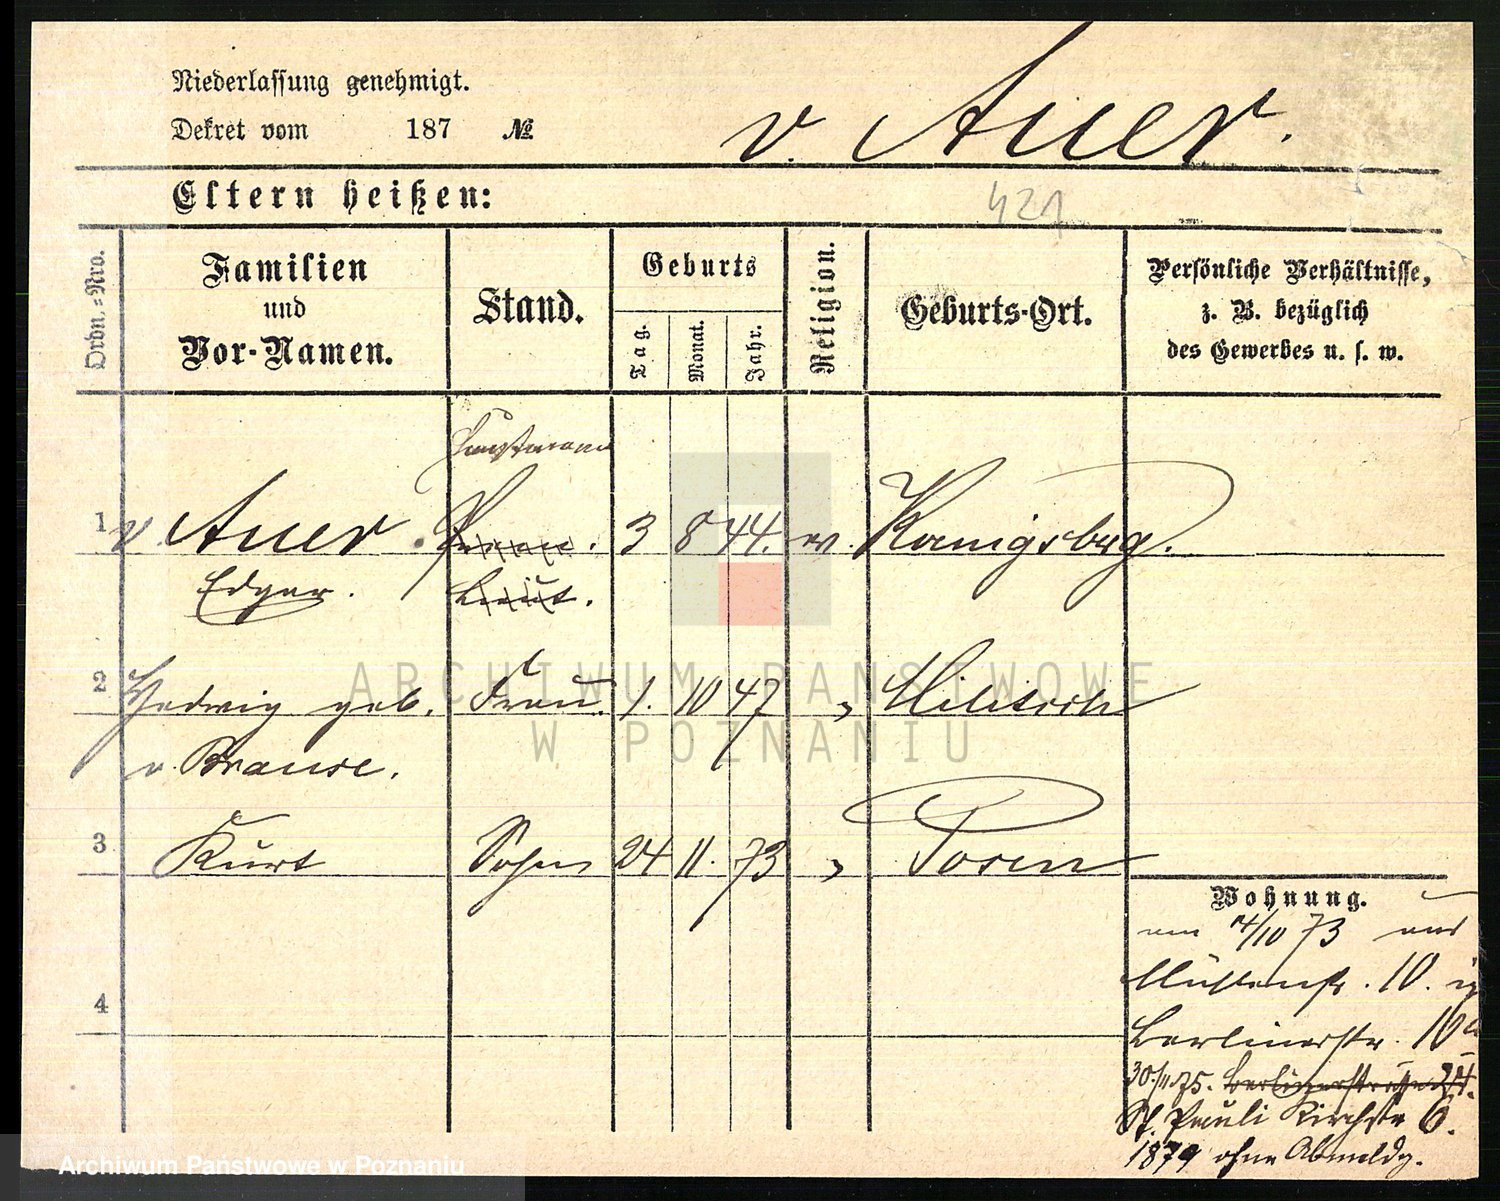 Niederlassung genehmigt.
Dekret vom 187 №
v. Auer.
Eltern heißen:
421
Ordn.=Nro.
Familien
und
Vor-Namen.
Stand.
Geburts
Tag.
Monat.
Jahr.
Religion.
Geburts-Ort.
Persönliche Verhältnisse,
z. B. bezüglich
des Gewerbes u. s. w.
Hauptmann
1 v. Auer. 3 8 44. ev. Königsbrg.
Edgar. Lieut.
2 Hedwig geb. Frau. 1. 10 47 " Militsch
v. Brause.
3 Kurt Sohn 24 11. 73 " Posen
Wohnung.
4/10 73
10.
4
Berlinerstr. 10a
30./11 75. Berlinerstraße
St. Pauli Kirchstr 6.
1879 ohne Abmeldg.
ARCHIWUM PAŃSTWOWE
W POZNANIU
Archiwum Państwowe w Poznaniu